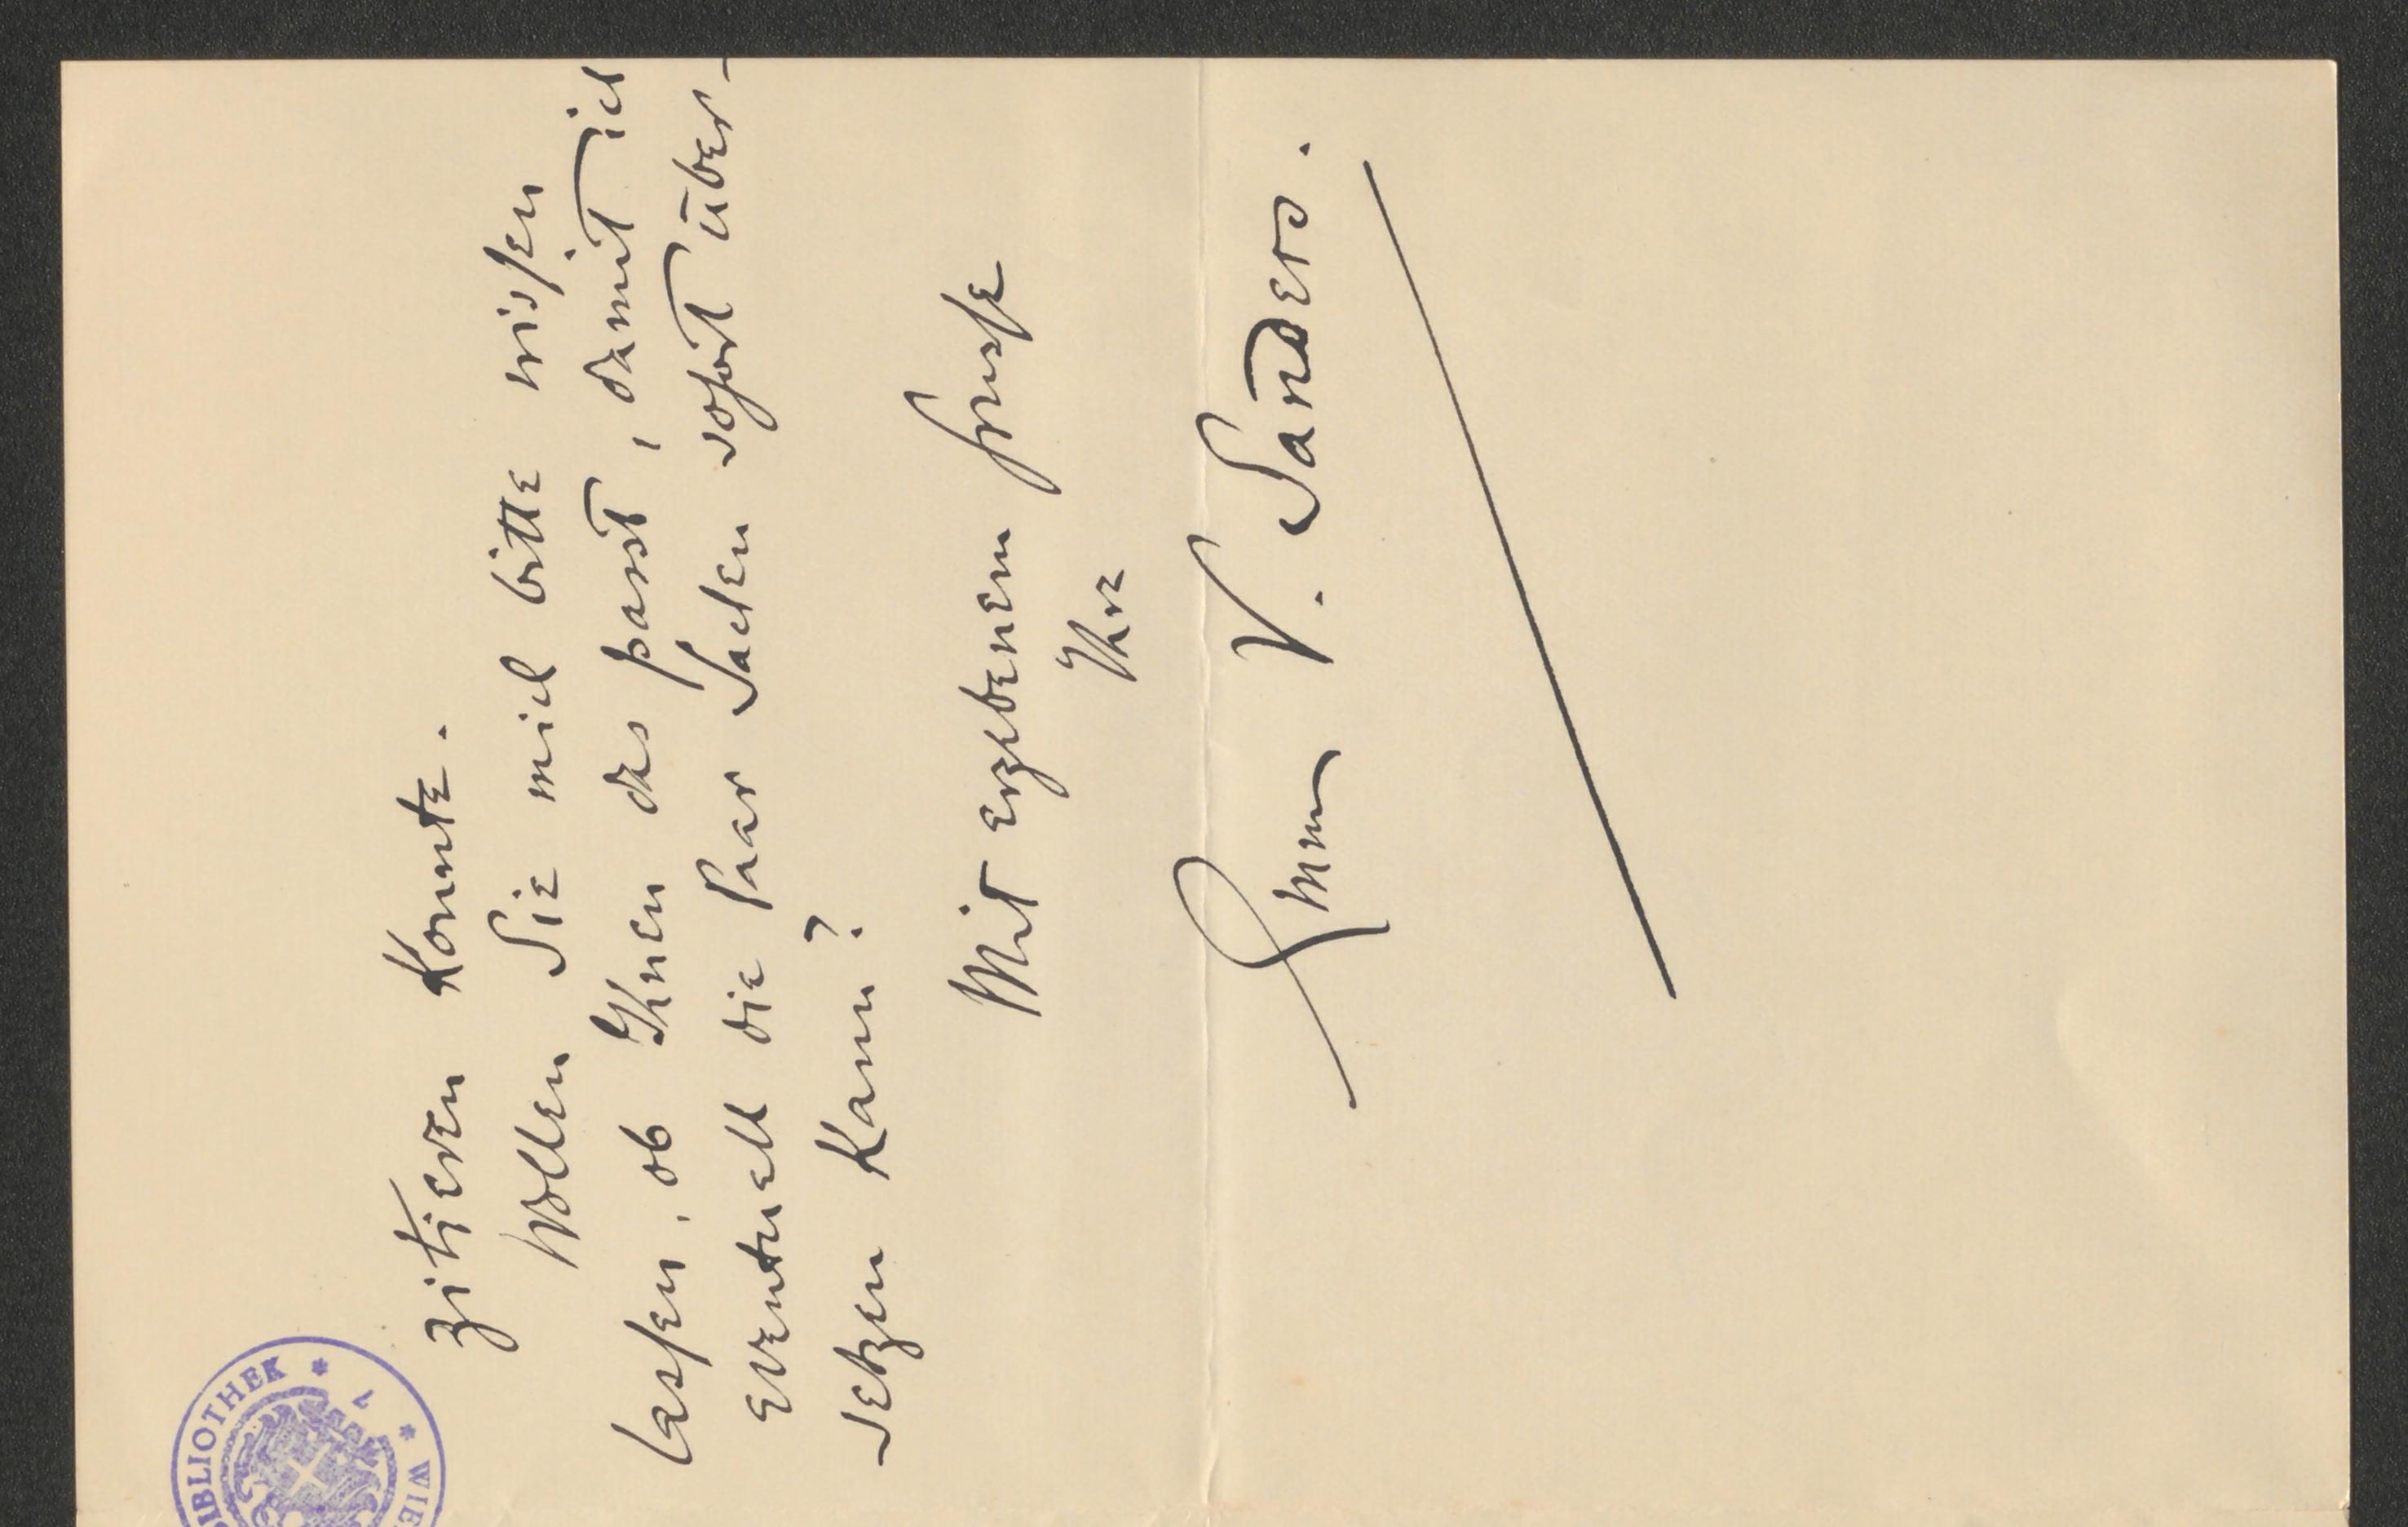 zitieren konnte.
Wollen Sie mich bitte wissen
lassen, ob Ihnen das passt, damit ich
eventuell die Paar Sachen sofort über-
setzen kann?
Mit ergebenem Grusse
Ihr
V. Sanders.
BIBLIOTHEK * 7 * WIE